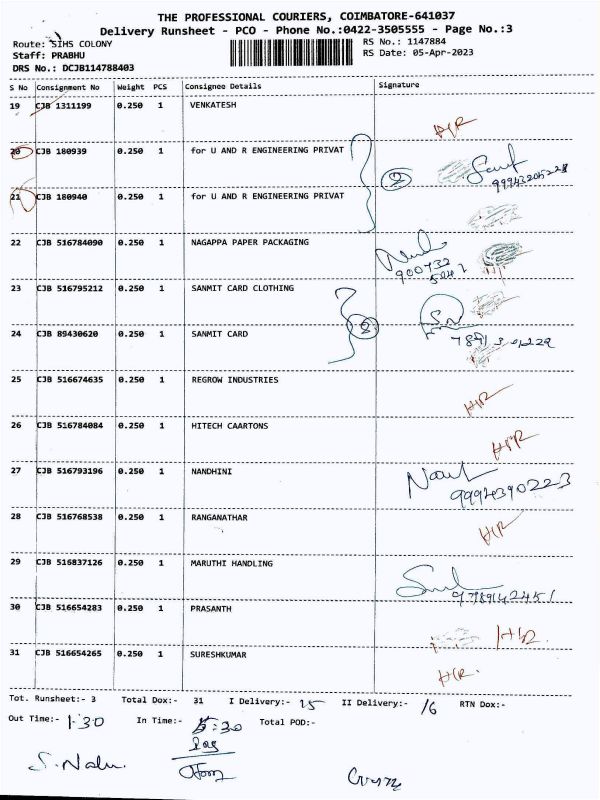 THE PROFESSIONAL COURIERS, COIMBATORE-641037
Delivery Runsheet - PCO - Phone No.:0422-3505555 - Page No.:3
Route: SIHS COLONY
RS No.: 1147884
Staff: PRABHU
RS Date: 05-Apr-2023
DRS No.: DCJB114788403
S No Consignment No Weight PCS Consignee Details Signature
19 CJB 1311199 0.250 1 VENKATESH
20 CJB 180939 0.250 1 for U AND R ENGINEERING PRIVAT
21 CJB 180940 0.250 1 for U AND R ENGINEERING PRIVAT
2
22 CJB 516784090 0.250 1 NAGAPPA PAPER PACKAGING
23 CJB 516795212 0.250 1 SANMIT CARD CLOTHING
24 CJB 89430620 0.250 1 SANMIT CARD
2
25 CJB 516674635 0.250 1 REGROW INDUSTRIES
26 CJB 516784084 0.250 1 HITECH CAARTONS
27 CJB 516793196 0.250 1 NANDHINI
9994390223
28 CJB 516768538 0.250 1 RANGANATHAR
29 CJB 516837126 0.250 1 MARUTHI HANDLING
9789142451
30 CJB 516654283 0.250 1 PRASANTH
31 CJB 516654265 0.250 1 SURESHKUMAR
Tot. Runsheet:- 3 Total Dox:- 31 I Delivery:- 15 II Delivery:- 16 RTN Dox:-
Out Time:- 1.30 In Time:- 5:30 Total POD:-